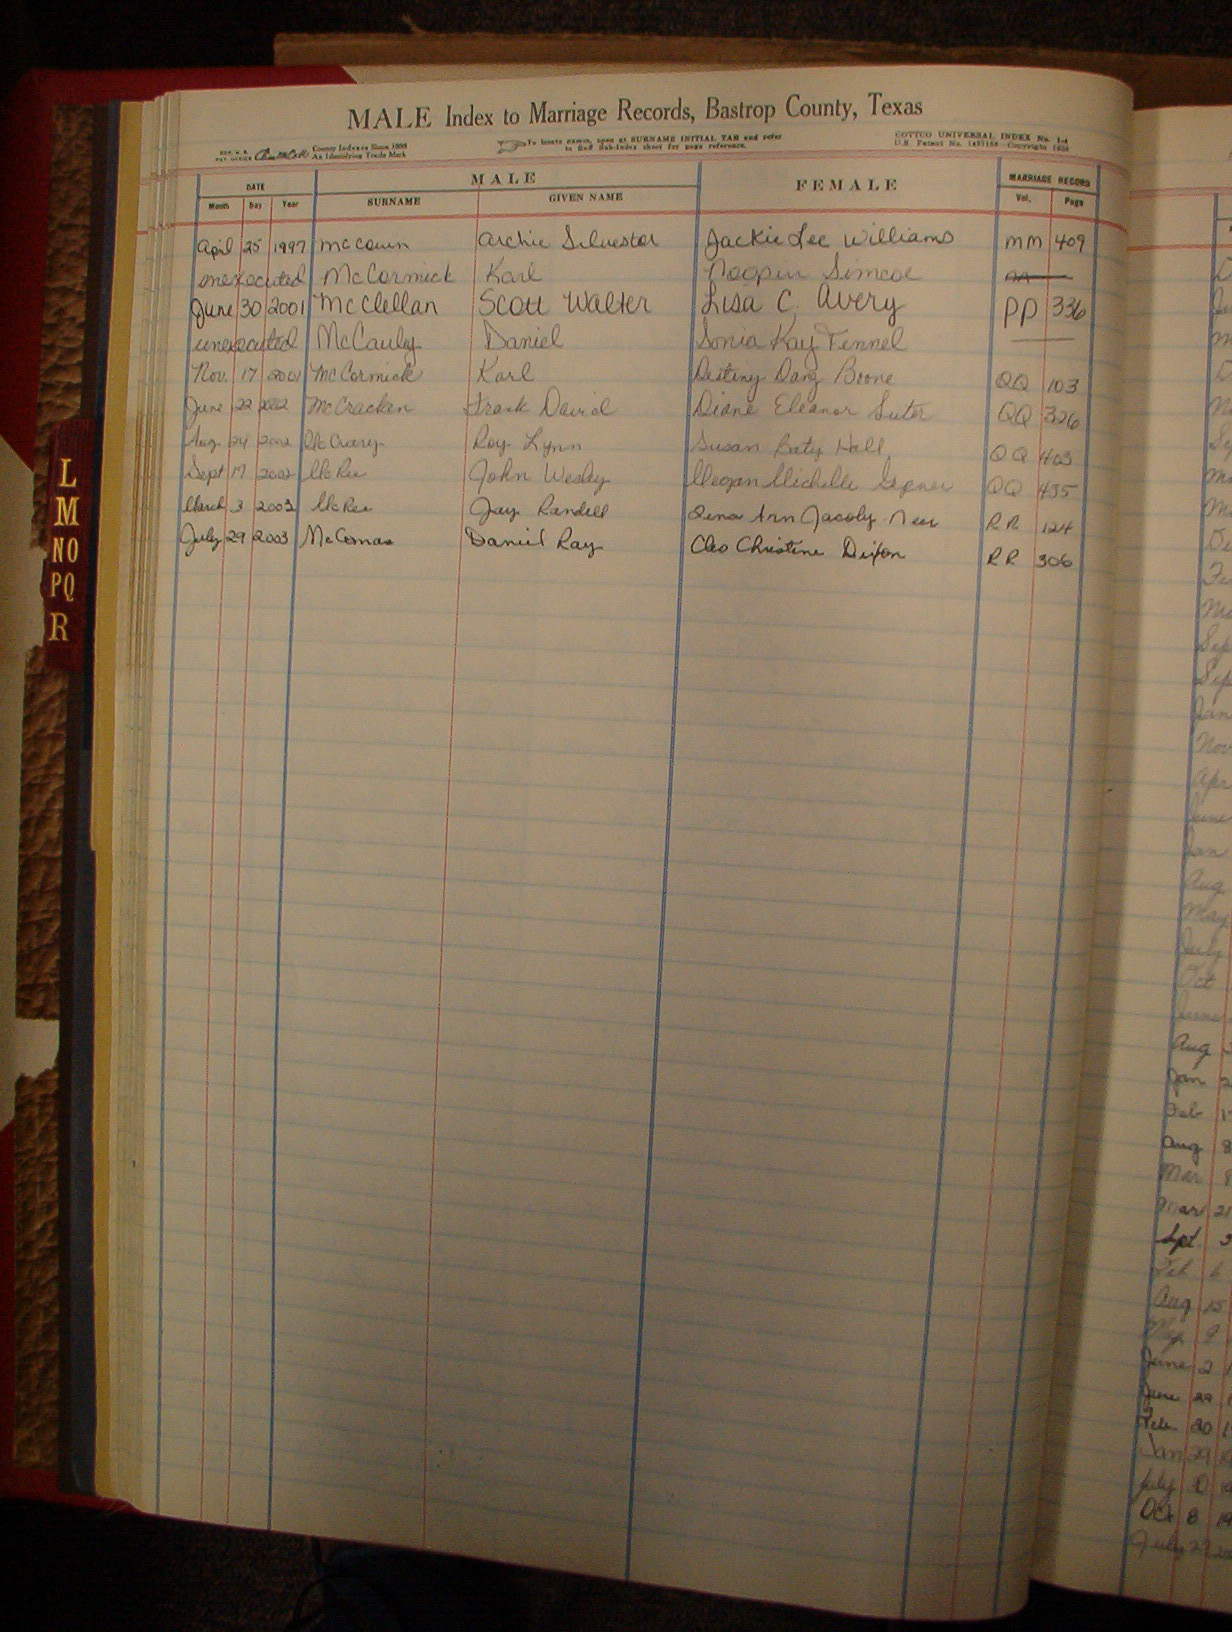 MALE Index to Marriage Records, Bastrop County, Texas
County Indexes Since 1888
As Identifying Trade Mark
To locate names, open at SURNAME INITIAL TAB and refer
to Red Sub-Index sheet for page reference.
COTTCO UNIVERSAL INDEX No. 1-4
DATE MALE FEMALE MARRIAGE RECORD
Month Day Year SURNAME GIVEN NAME Vol. Page
April 25 1997 McCown Archie Silvester Jackie Lee Williams MM 409
unexecuted McCormick Karl Noopin Simcoe
June 30 2001 McClellan Scott Walter Lisa C. Avery PP 336
unexecuted McCauley Daniel Sonia Kay Fennel
Nov. 17 2001 McCormick Karl Destiny Dang Boone QQ 103
June 22 2002 McCracken Frank David Diane Eleanor Suter QQ 326
Aug 24 2002 McCrary Roy Lynn Susan Baty Hall QQ 403
Sept 17 2002 McRee John Wesley Megan Michelle QQ 435
March 3 2003 McRee Jay Randell Ann Jacoby RR 124
July 29 2003 McComas Daniel Ray Cleo Christine Dixon RR 306
L
M
NO
PQ
R
Jan
Nov
Apr
June
Jan
Aug
May
July
Oct
June
Aug
Jan
Feb
Aug
Mar 8
Mar 21
Sept
Feb 6
Aug 15
June 2
June 29
Feb 20
Jan 29
July
Oct 8
July